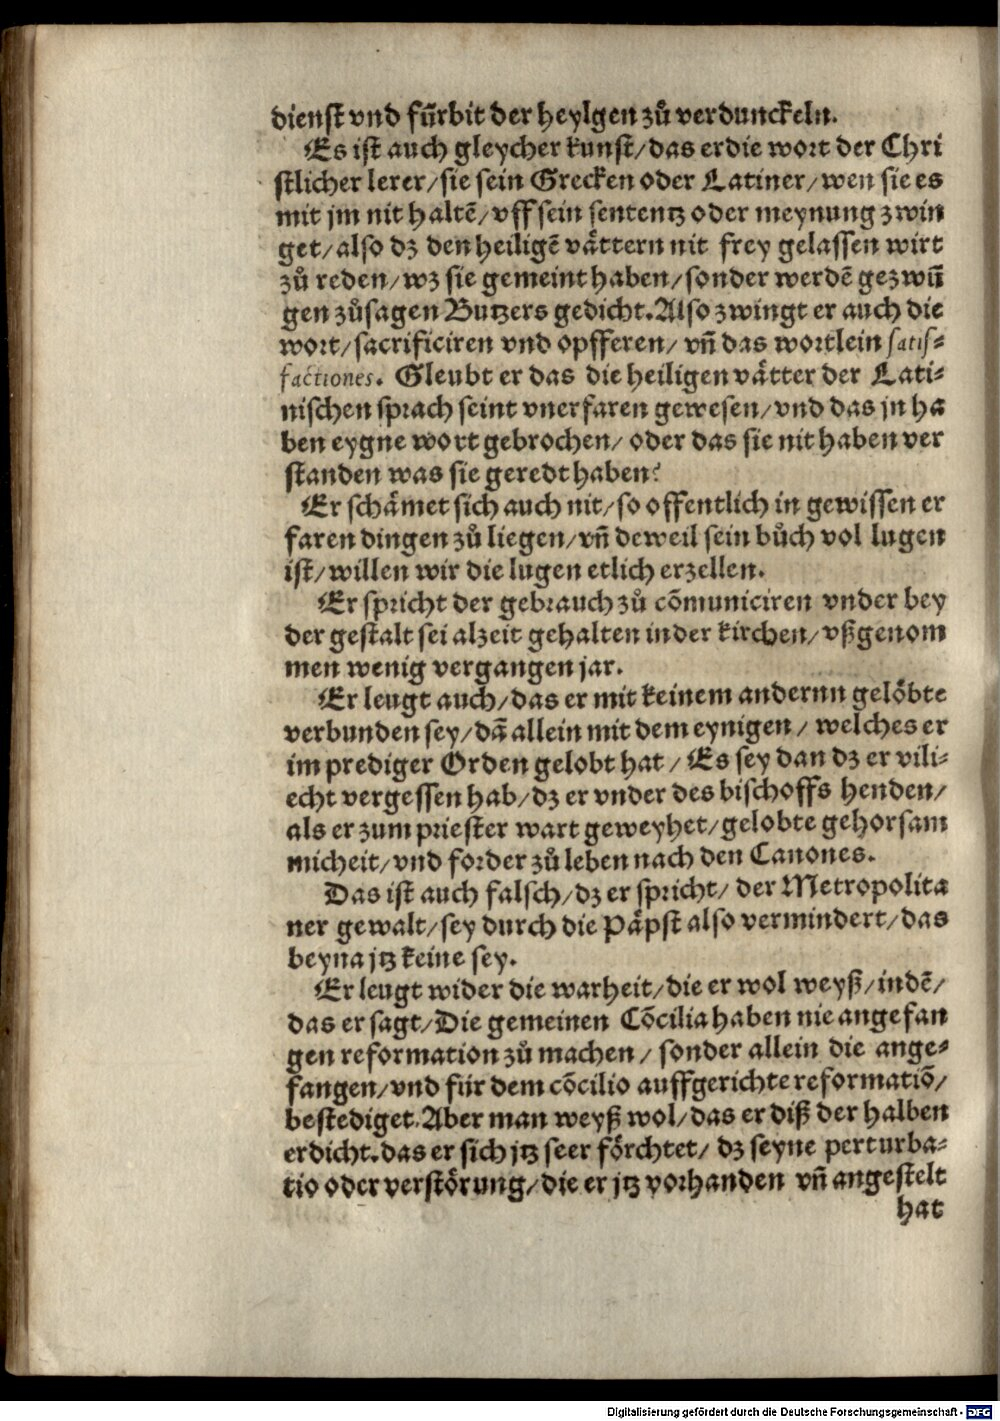 dienst vnd fürbit der heylgen zů verdunckeln.
Es ist auch gleycher kunst/das er die wort der Chri
stlicher lerer/sie sein Grecken oder Latiner/wen sie es
mit jm nit haltē/vff sein sententz oder meynung zwin
get/also dz den heiligē vättern nit frey gelassen wirt
zů reden/wz sie gemeint haben/sonder werdē gezwū
gen zůsagen Butzers gedicht.Also zwingt er auch die
wort/sacrificiren vnd opfferen/vñ das wortlein satis-
factiones. Gleubt er das die heiligen vätter der Lati-
nischen sprach seint vnerfaren gewesen/vnd das jn ha
ben eygne wort gebrochen/oder das sie nit haben ver
standen was sie geredt haben?
Er schämet sich auch nit/so offentlich in gewissen er
faren dingen zů liegen/vñ deweil sein bůch vol lugen
ist/willen wir die lugen etlich erzellen.
Er spricht der gebrauch zů cōmuniciren vnder bey
der gestalt sei alzeit gehalten in der kirchen/vßgenom
men wenig vergangen jar.
Er leugt auch/das er mit keinem andernn gelöbte
verbunden sey/dā allein mit dem eynigen/ welches er
im prediger Orden gelobt hat/ Es sey dan dz er vili-
echt vergessen hab/dz er vnder des bischoffs henden/
als er zum priester wart geweyhet/gelobte gehorsam
micheit/vnd forder zů leben nach den Canones.
Das ist auch falsch/dz er spricht/der Metropolita
ner gewalt/sey durch die Päpst also vermindert/das
beyna jtz keine sey.
Er leugt wider die warheit/die er wol weyß/in dē/
das er sagt/Die gemeinen Cōcilia haben nie angefan
gen reformation zů machen/ sonder allein die ange-
fangen/vnd für dem cōcilio auffgerichte reformatiō/
bestediget.Aber man weyß wol/das er diß der halben
erdicht.das er sich jtz seer förchtet/ dz seyne perturba-
tio oder verstörung/die er jtz vorhanden vñ angestelt
hat
Digitalisierung gefördert durch die Deutsche Forschungsgemeinschaft - DFG